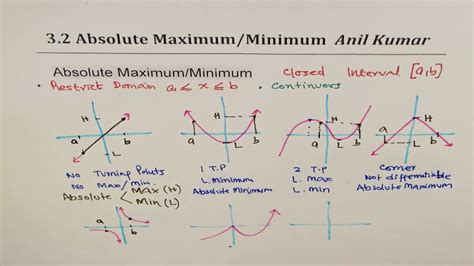 3.2 Absolute Maximum/Minimum Anil Kumar
Absolute Maximum/Minimum Closed Interval [a,b]
• Restrict Domain a ≤ x ≤ b • Continuous
H a b L
H a b L
H a b L
H a b L
No Turning Points
No Max/min.
Absolute < Max (H)
Min (L)
1 T.P
L. minimum
Absolute Minimum
2 T.P
L. max
L. min
Corner
Not differentiable
Absolute Maximum
a b